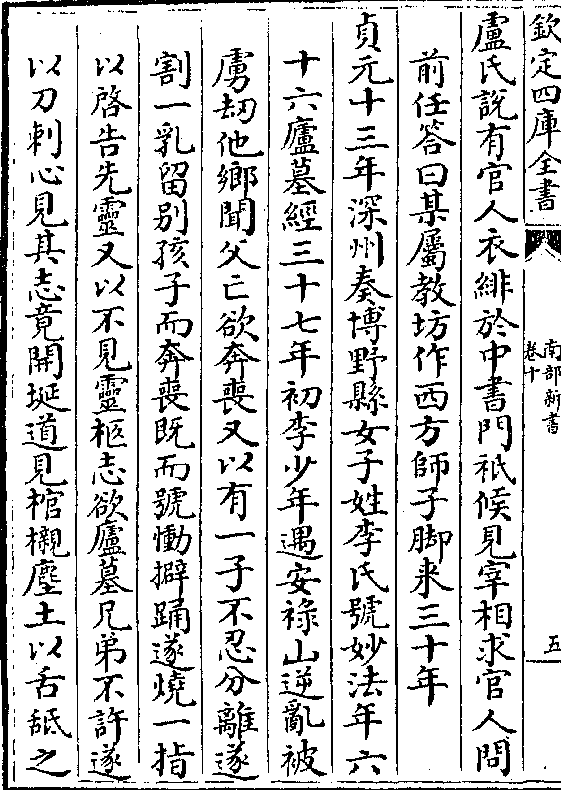 欽定四庫全書
南部新書
卷十
五
盧氏說有官人衣緋於中書門祇候見宰相求官人問
前任答曰某屬教坊作西方師子脚来三十年
貞元十三年深州奏博野縣女子姓李氏號妙法年六
十六廬墓經三十七年初李少年遇安祿山逆亂被
虜刼他鄉聞父亡欲奔喪又以有一子不忍分離遂
割一乳留别孩子而奔喪既而號慟擗踊遂燒一指
以啓告先靈又以不見靈柩志欲廬墓兄弟不許遂
以刀刺心見其志竟開埏道見棺櫬塵土以舌舐之